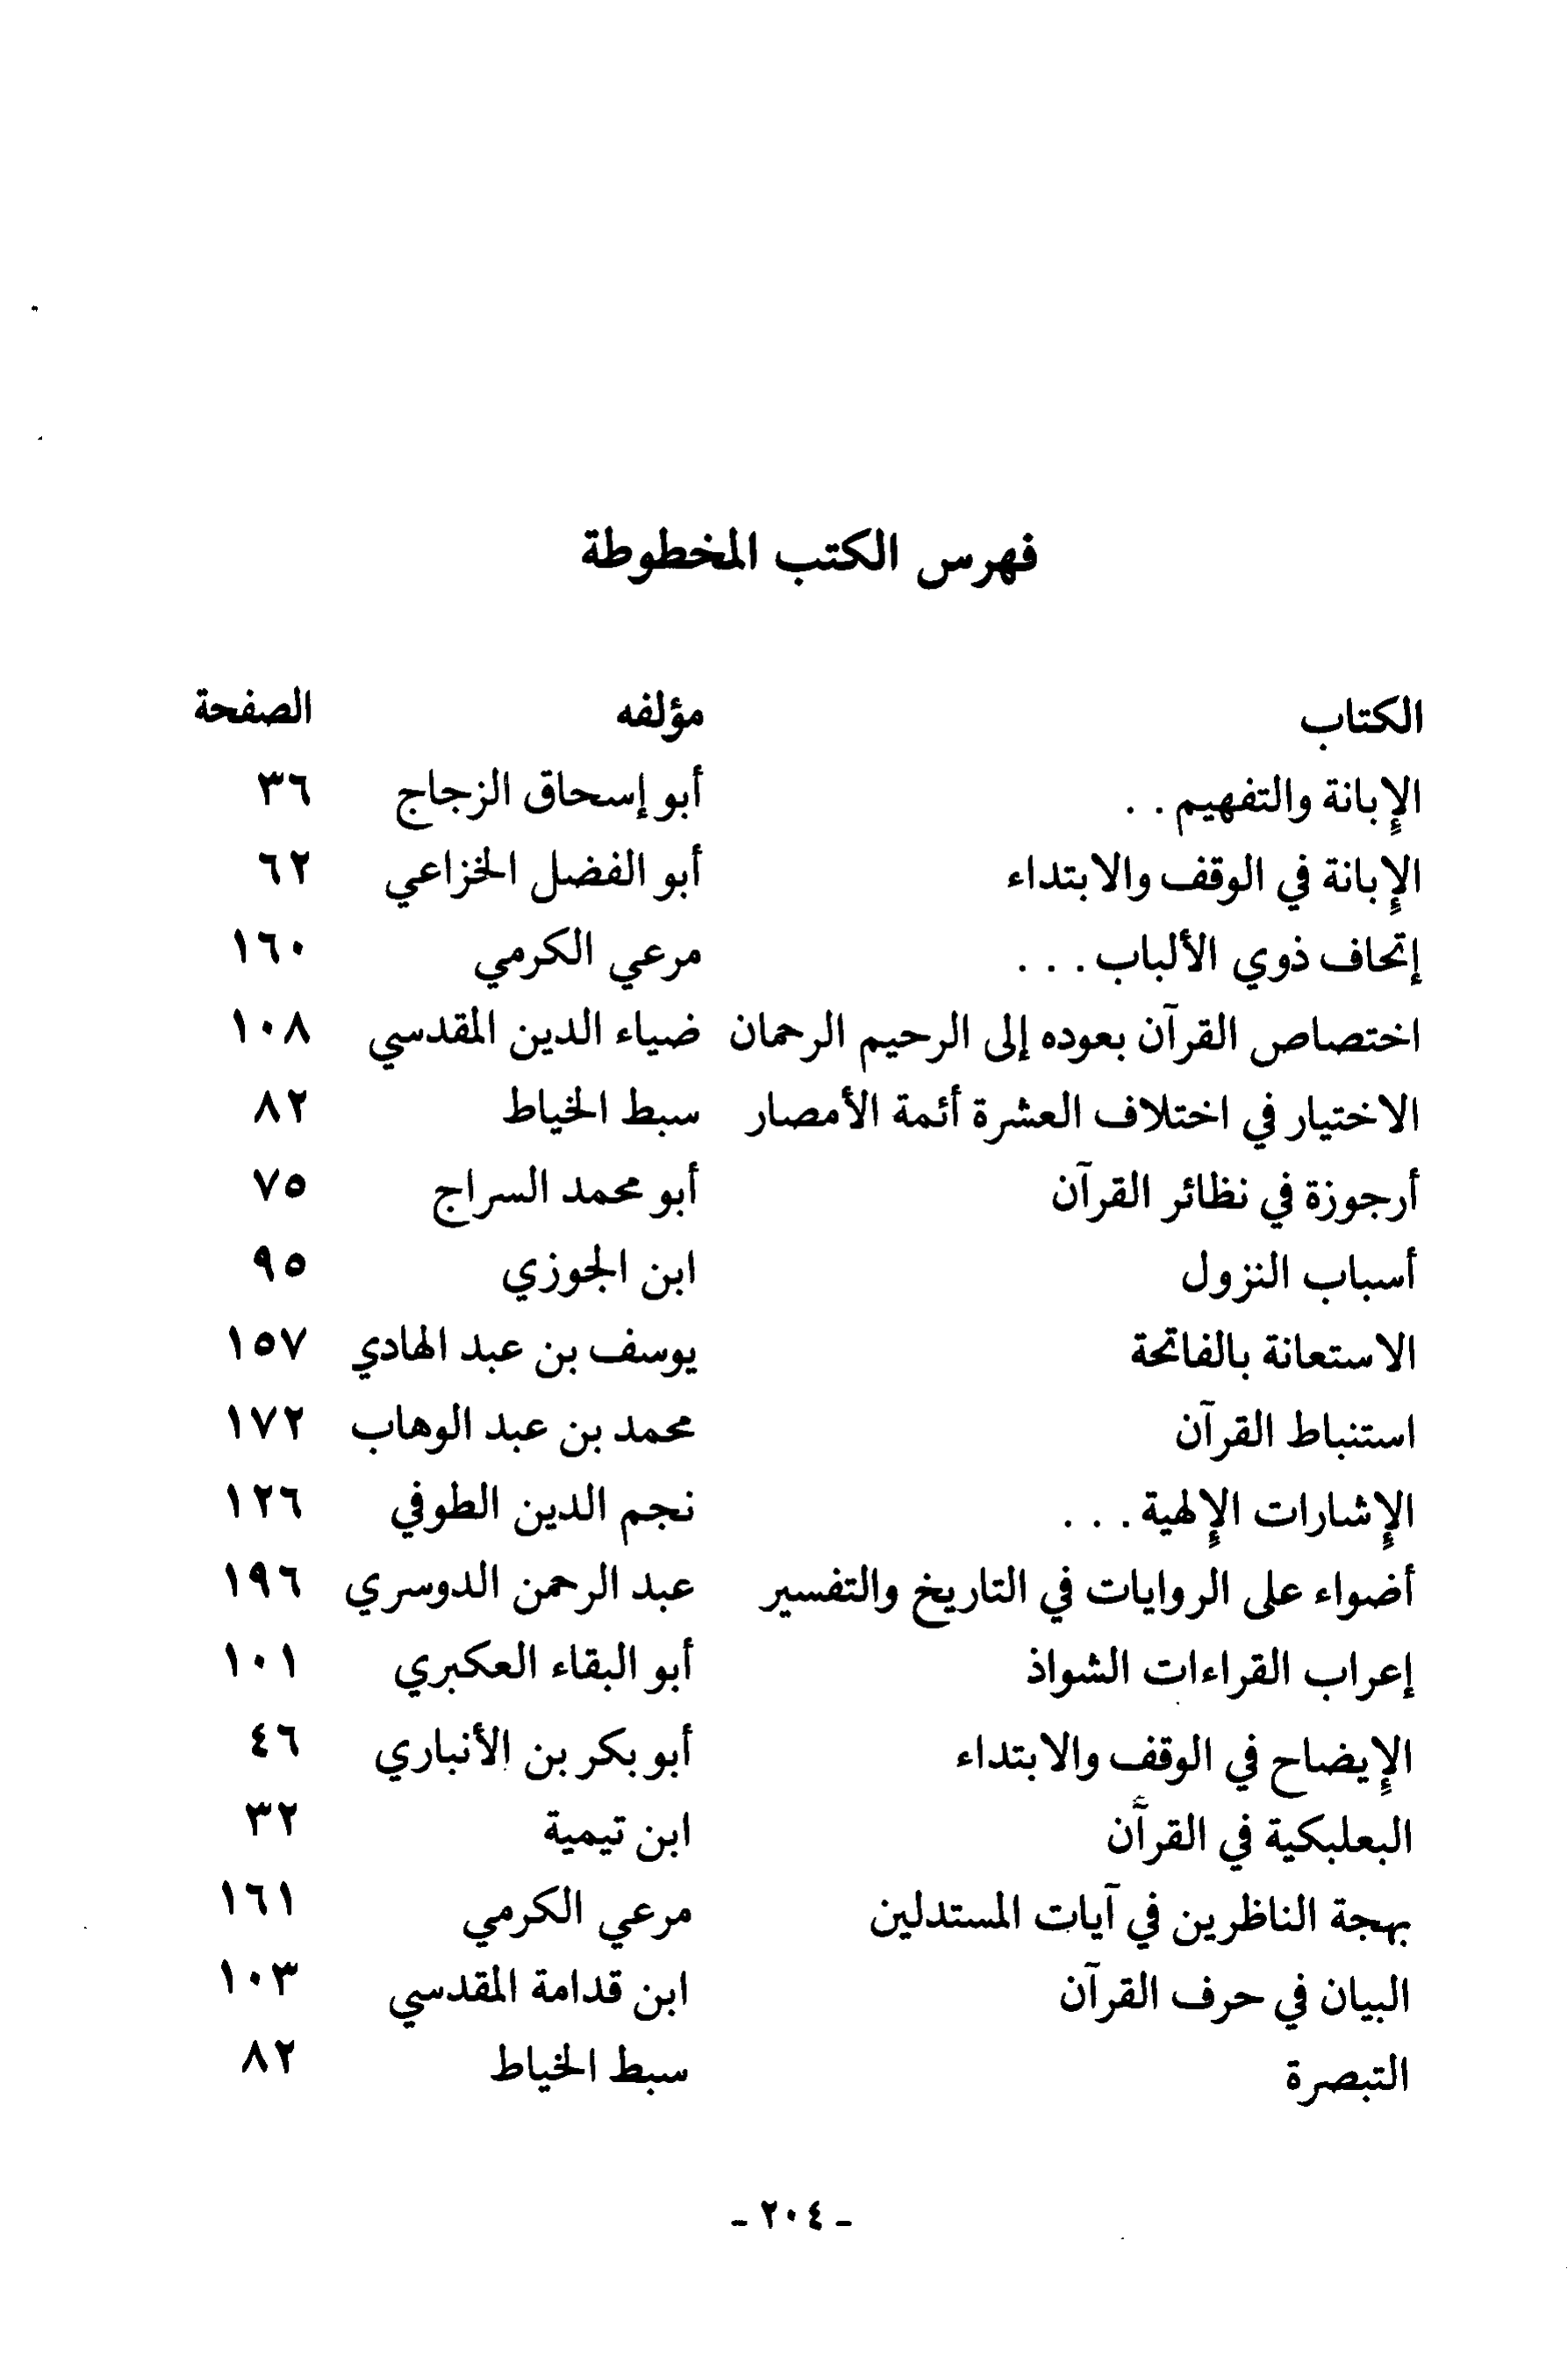 فهرس الكتب المخطوطة
الكتاب مؤلفه الصفحة
الإبانة والتفهيم . . أبو إسحاق الزجاج ٣٦
الإبانة في الوقف والابتداء أبو الفضل الخزاعي ٦٢
إتحاف ذوي الألباب . . . مرعي الكرمي ١٦٠
اختصاص القرآن بعوده إلى الرحيم الرحمان ضياء الدين المقدسي ١٠٨
الاختيار في اختلاف العشرة أئمة الأمصار سبط الخياط ٨٢
أرجوزة في نظائر القرآن أبو محمد السراج ٧٥
أسباب النزول ابن الجوزي ٩٥
الاستعانة بالفاتحة يوسف بن عبد الهادي ١٥٧
استنباط القرآن محمد بن عبد الوهاب ١٧٢
الإشارات الإلهية . . . نجم الدين الطوفي ١٢٦
أضواء على الروايات في التاريخ والتفسير عبد الرحمن الدوسري ١٩٦
إعراب القراءات الشواذ أبو البقاء العكبري ١٠١
الإيضاح في الوقف والابتداء أبو بكر بن الأنباري ٤٦
البعلبكية في القرآن ابن تيمية ٣٢
بهجة الناظرين في آيات المستدلين مرعي الكرمي ١٦١
البيان في حرف القرآن ابن قدامة المقدسي ١٠٣
التبصرة سبط الخياط ٨٢
- ٢٠٤ -